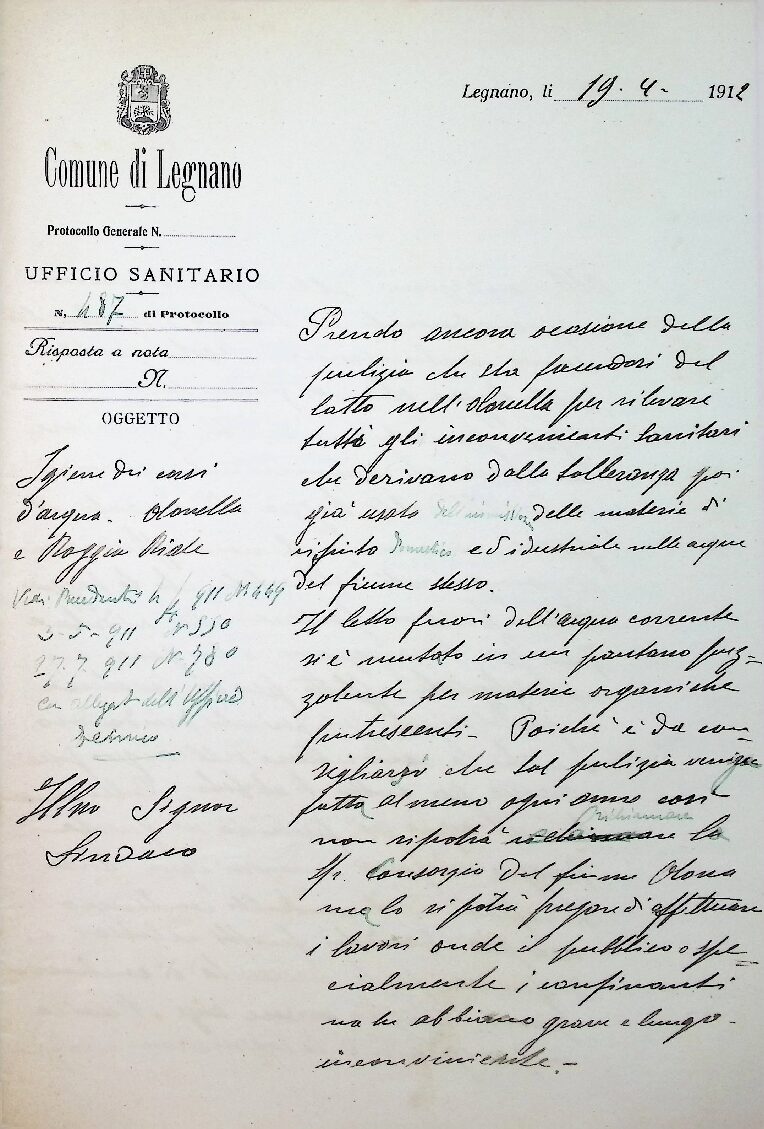 Legnano, li 19. 4- 1912
Comune di Legnano
Protocollo Generale N.
UFFICIO SANITARIO
N. 487 di Protocollo
Risposta a nota
N.
OGGETTO
Igiene dei corsi
d'acqua. Olonella
e Roggia Riale
911 N 449
3-5-911 N 550
27.7.911 N. 780
con allegati dell'Ufficio
Tecnico
Illmo Signor
Sindaco
Prendo ancora ocasione della
pulizia che sta facendosi del
letto nell'Olonella per rilevare
tutti gli inconvenienti sanitari
che derivano dalla tolleranza poi
già usato dell'immissione delle materie di
rifiuto domestico ed idustriale nelle acque
del fiume stesso.
Il letto fuori dell'acqua corrente
si è mutato in un pantano puz-
zolente per materie organiche
putrescenti. Poichè è da con-
sigliarsi che tal pulizia venga
fatta almeno ogni anno così
non si potrà richiamare lo
Sp. Consorzio del fiume Olona
ma lo si potrà pregare di effettuare
i lavori onde il pubblico e spe-
cialmente i confinanti
ne abbiano grave e lungo
inconviniente.-